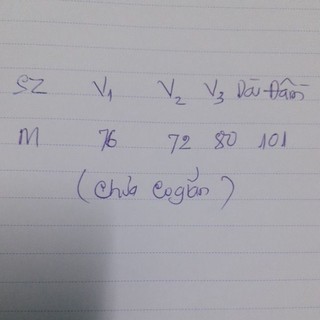 SZ V1 V2 V3 Dài Đầm
M 76 72 80 101
(chưa co gắn)